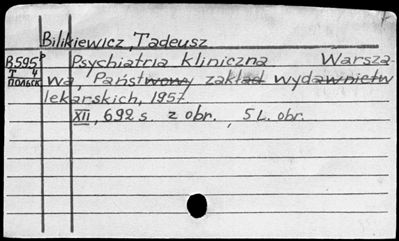 Bilikiewicz, Tadeusz
B595 p Psychiatria kliniczna Warsza-
T 4 wa, Państwowy zakład wydawnictw
польск lekarskich, 1957.
XII, 692 s. z obr., 5 L. obr.